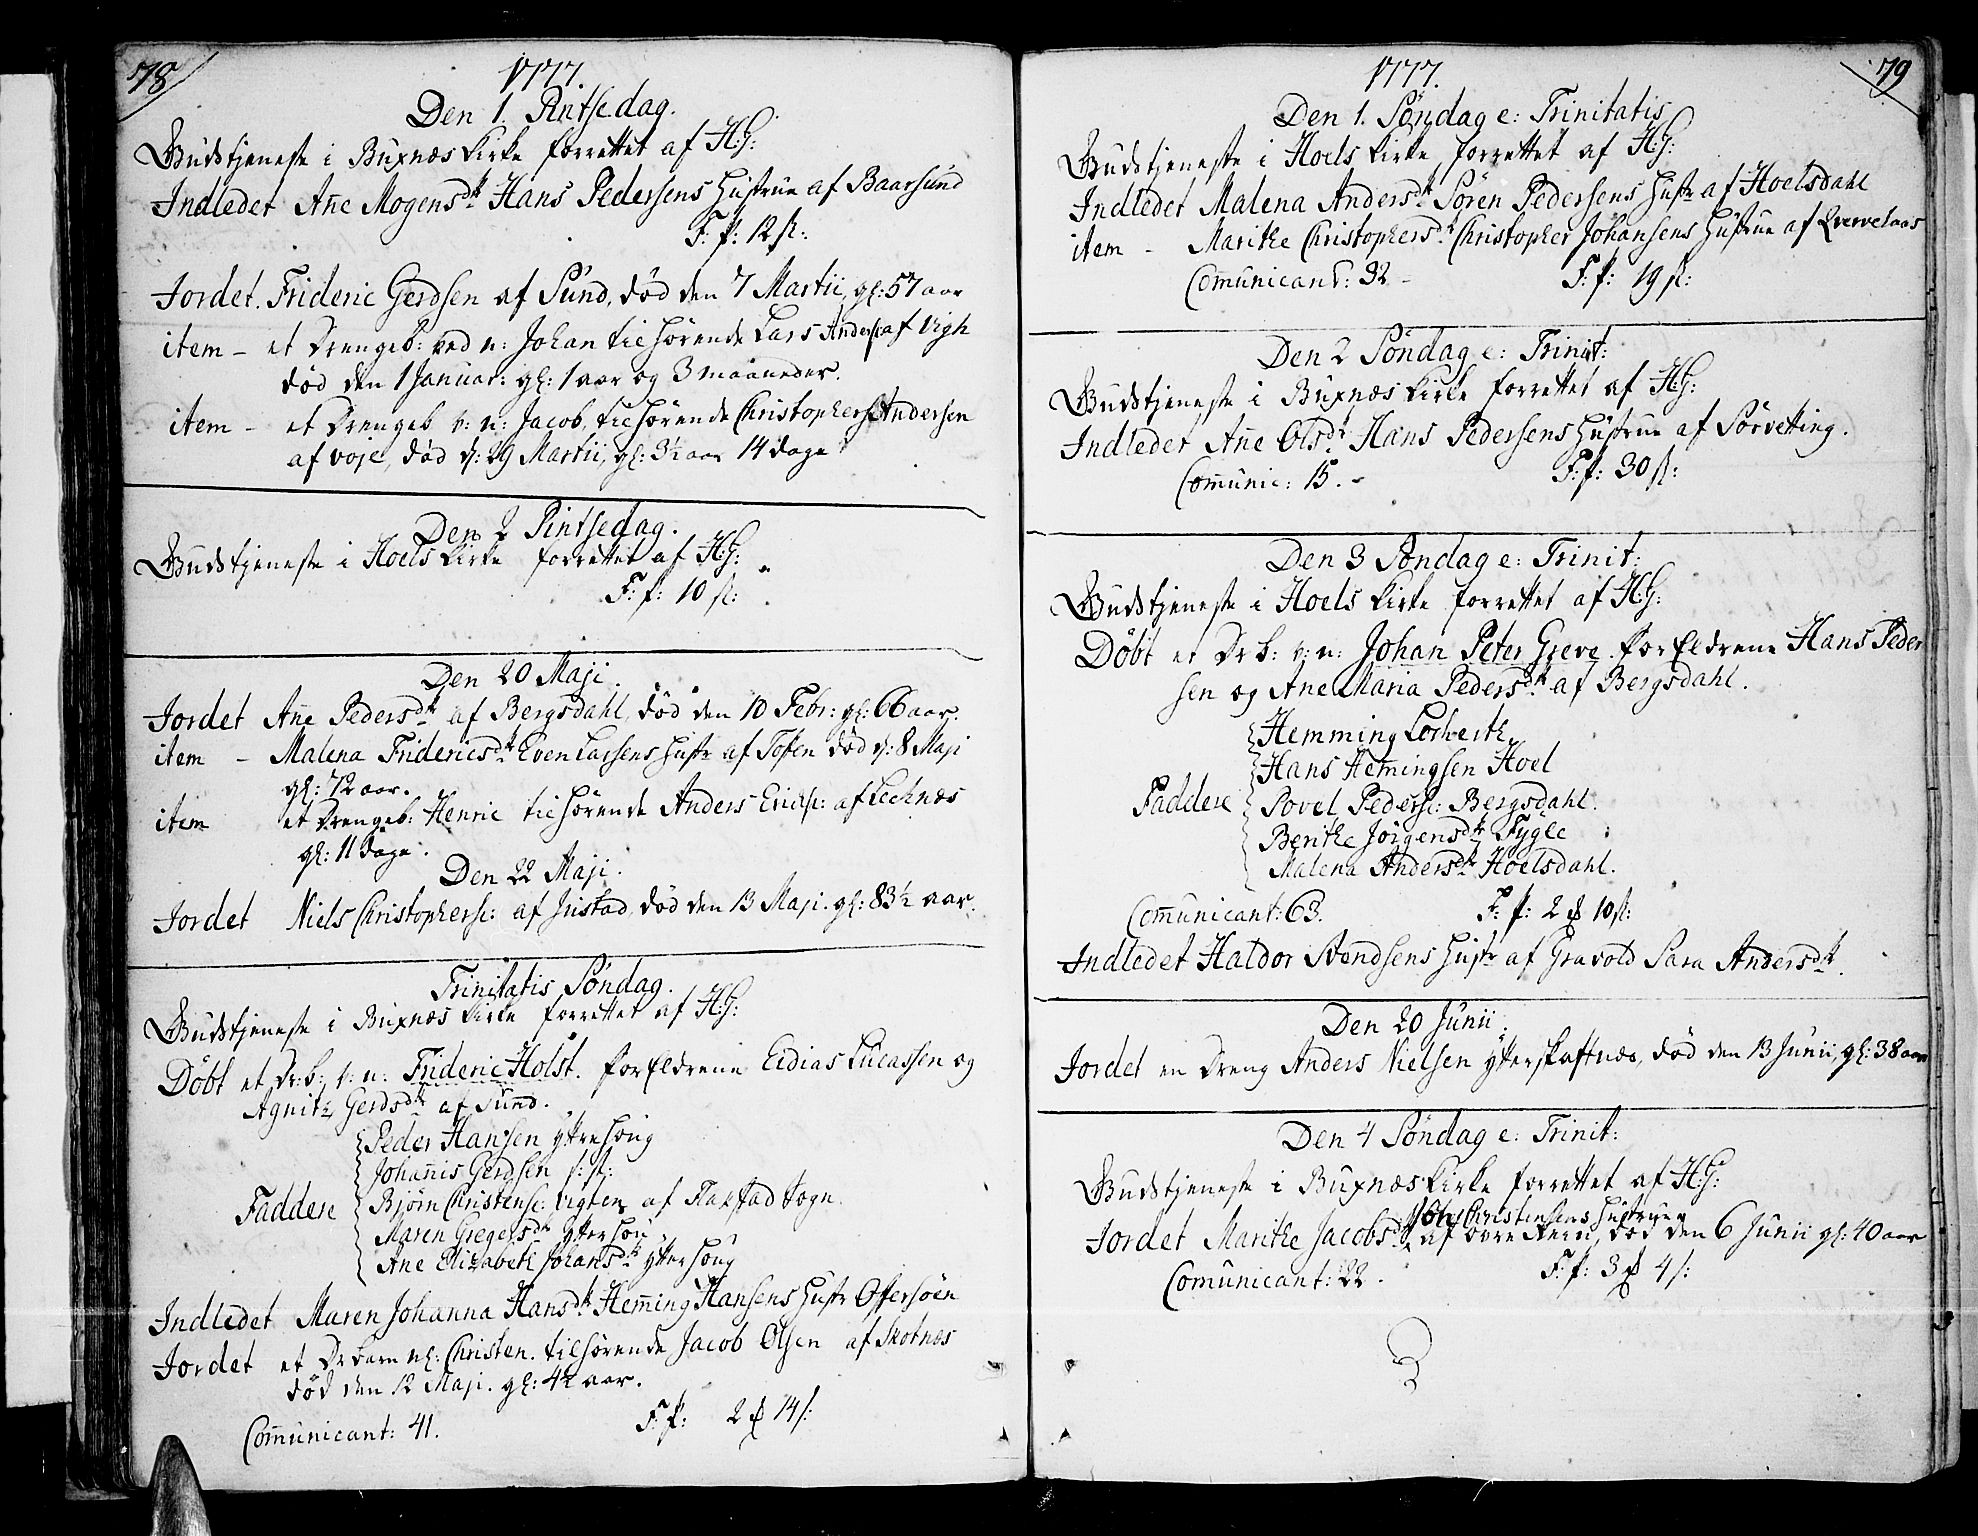 78
1777.
Den 1. Pintsedag.
Gudstjeneste i Buxnæs Kirke forrettet af H:G:
Indledet Añe Mogensdr Hans Pedersens Hustrue af Baarsund
F: f: 12 s:
Jordet. Frideric Gerdsen af Sund, død den 7 Martii, gl: 57 aar
item – et Drengeb: ved n: Johan tilhørende Lars Anders: af Vigh
død den 1 Januar: gl: 1 aar og 3 maaneder.
item – et Drengeb v: n: Jacob, tilhørende Christopher Andersen
af voje, død d: 29 Martii, gl: 3½ aar 14 dage
Den 2 Pintsedag.
Gudstjeneste i Hoels Kirke forrettet af H:G:
F: f: 10 s:
Den 20 Maji.
Jordet Añe Pedersdr af Bergsdahl, død den 10 Febr: gl: 66 aar.
item – Malena Fridericsdr Even Larsens Hustr af Tofen død d: 8 Maji
gl: 72 aar.
item et Drengeb: Henric tilhørende Anders Erics: af Lechnæs
gl: 11 dage.
Den 22 Maji.
Jordet Niels Christophers: af Justad, død den 13 Maji. gl: 83½ aar.
Trinitatis Søndag.
Gudstjeneste i Buxnæs Kirke forrettet af H:G:
Døbt et Dr:b: v: n: Frideric Holst. forældrene Eidias Lucassen og
Agnith Gerdsdr af Sund.
Peder Hansen yttrehoug
Johañis Gerdsen s: st:
Faddere Bjørn Christens: Vigten af Flakstad Sogn.
Maren Gregersdr ytterhou
Ane Elizabeth Johansdr ytterhoug
Indledet Maren Johanna Hansdr Heming Hansens Hustr Offersøen
Jordet et Drbarn nl: Christen. tilhørende Jacob Olsen af Skotnæs
død den 12 Maji. gl: 4½ aar.
Comunicant: 41. F: f: 2 ꝶ 14 s:
79
1777.
Den 1. Søndag e: Trinitatis
Gudstjeneste i Hoels Kirke, forrettet af H:G:
Indledet Malena Andersdr Søren Pedersens Hustr af Hoelsdahl
item – Marithe Christophersdr Christopher Johansens Hustrue af
Comunicant: 32 – F: f: 19 s:
Den 2 Søndag e: Trinit:
Gudstjeneste i Buxnæs Kirke forrettet af H:G:
Indledet Añe Olsdr Hans Pedersens Hustrue af Sørvetting.
Comunic: 15. – F: f: 30 s:
Den 3 Søndag e: Trinit:
Gudstjeneste i Hoels Kirke forrettet af H:G:
Døbt et Dr.b: v: n: Johan Peter Greve. forældrene Hans Peder
sen og Ane Maria Pedersdr af Bergsdahl.
Hemming
Hans Hemingsen Hoel
Faddere Povel Peders: Bergsdahl.
Berithe Jörgensdr Fygle
Malena Andersdr Hoelsdahl.
Comunicant: 63. F: f: 2 ꝶ 10 s:
Indledet Haldor Svendsens Hustr af Gravold Sara Andersdr.
Den 20 Junii.
Jordet en Dreng Anders Nielsen ytterskaftnæs, død den 13 Junii, gl: 38 aar
Den 4 Søndag e: Trinit:
Gudstjeneste i Buxnæs Kirke forrettet af H:G:
Christensens Hustrue
Jordet Marithe Jacobsdr af død den 6 Junii gl: 40 aar
Comunicant: 22. F: f: 3 ꝶ 4 s: